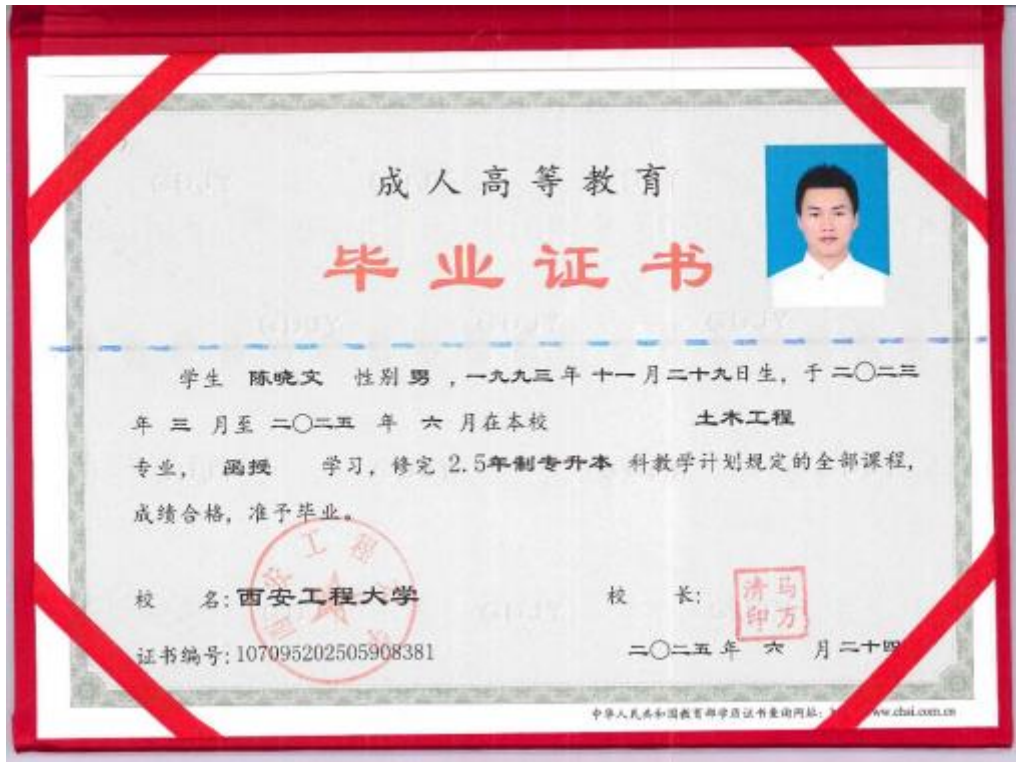 成人高等教育
毕业证书
学生 陈晓文 性别 男 ,一九九三年 十一月二十九日生,于二〇二三
年 三 月至 二〇二五 年 六 月在本校 土木工程
专业, 函授 学习,修完 2.5年制专升本 科教学计划规定的全部课程,
成绩合格,准予毕业。
校 名:西安工程大学
校 长:
马方清印
证书编号:107095202505908381
二〇二五 年 六 月二十四
中华人民共和国教育部学历证书查询网址: